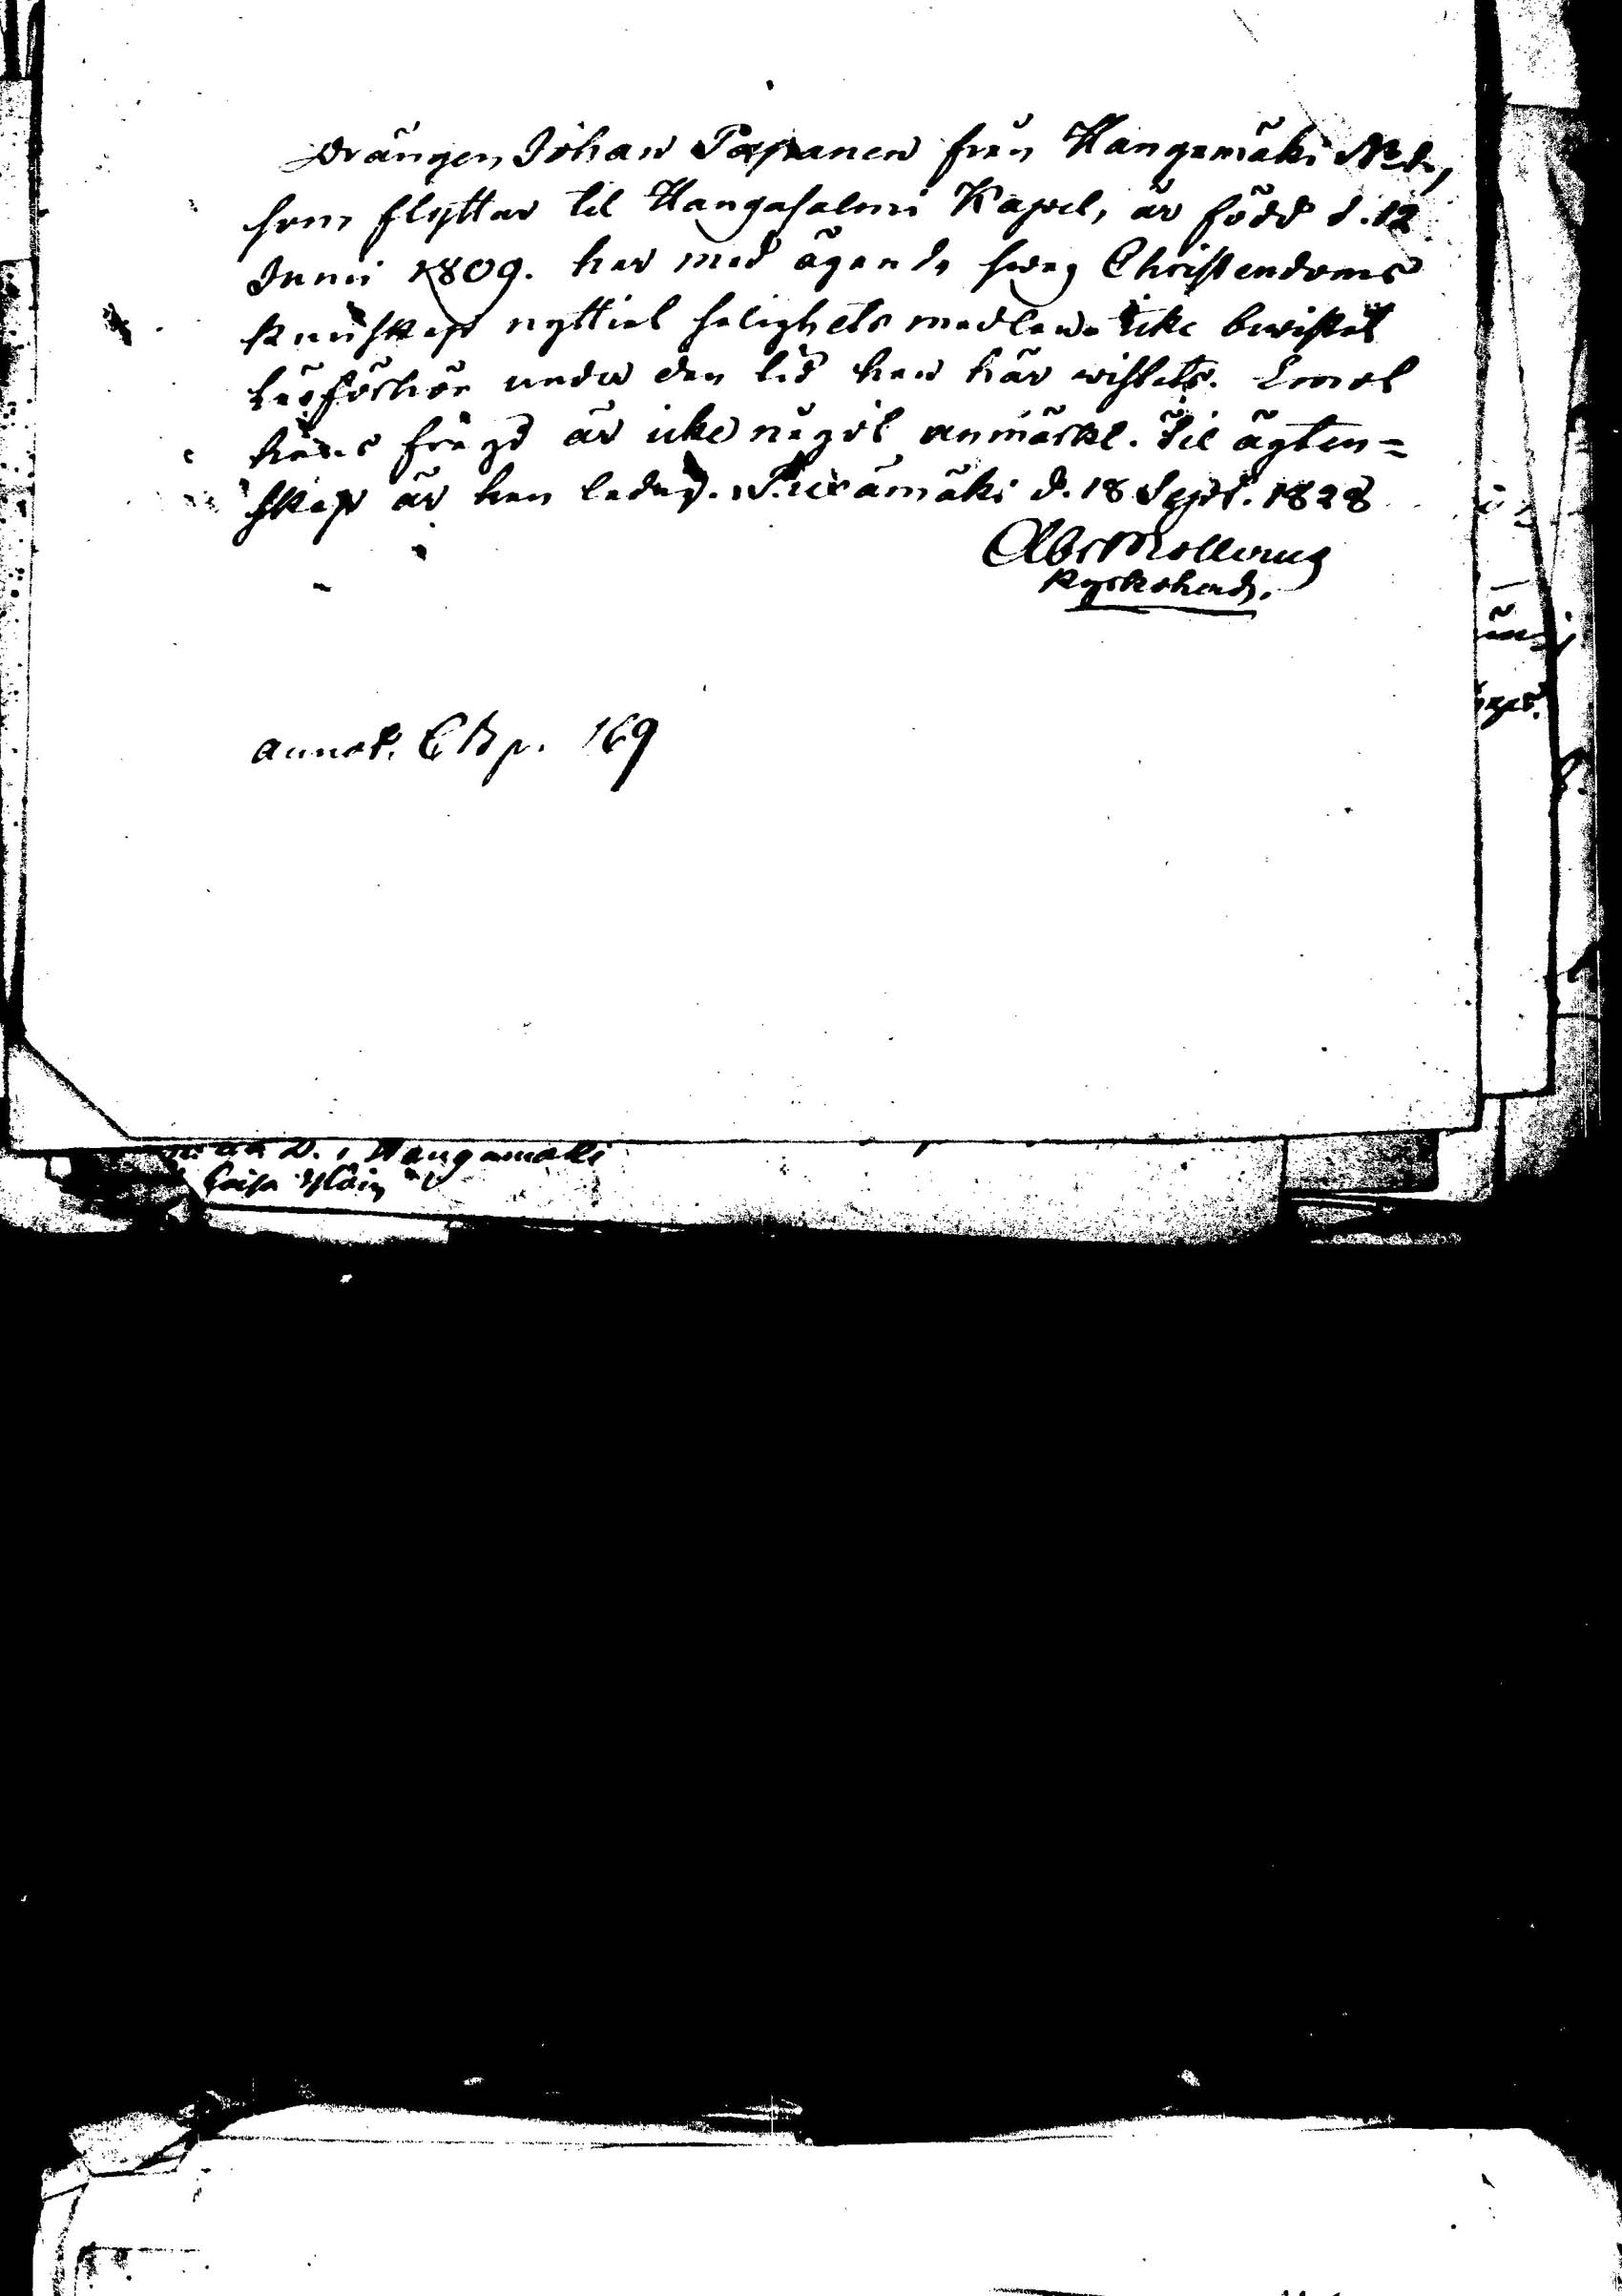 Drängen Johan Papanen från Kangasmäki N:o 2,
som flyttar til Kangasalmi Kapel, är född d. 12
Junii 1809. har med ägande svag Christendoms
kunskap nyttiat salighets medlen. icke bevistat
läsförhör under den tid han här vistats. Emot
hans frägd är icke något anmärkt. Til ägten=
skap är han ledig. Piexämäki d. 18 Sept. 1828
Abr Mollerus
Kyrkoherd.
annot. C B p. 169
Kangasmäki
Caisa